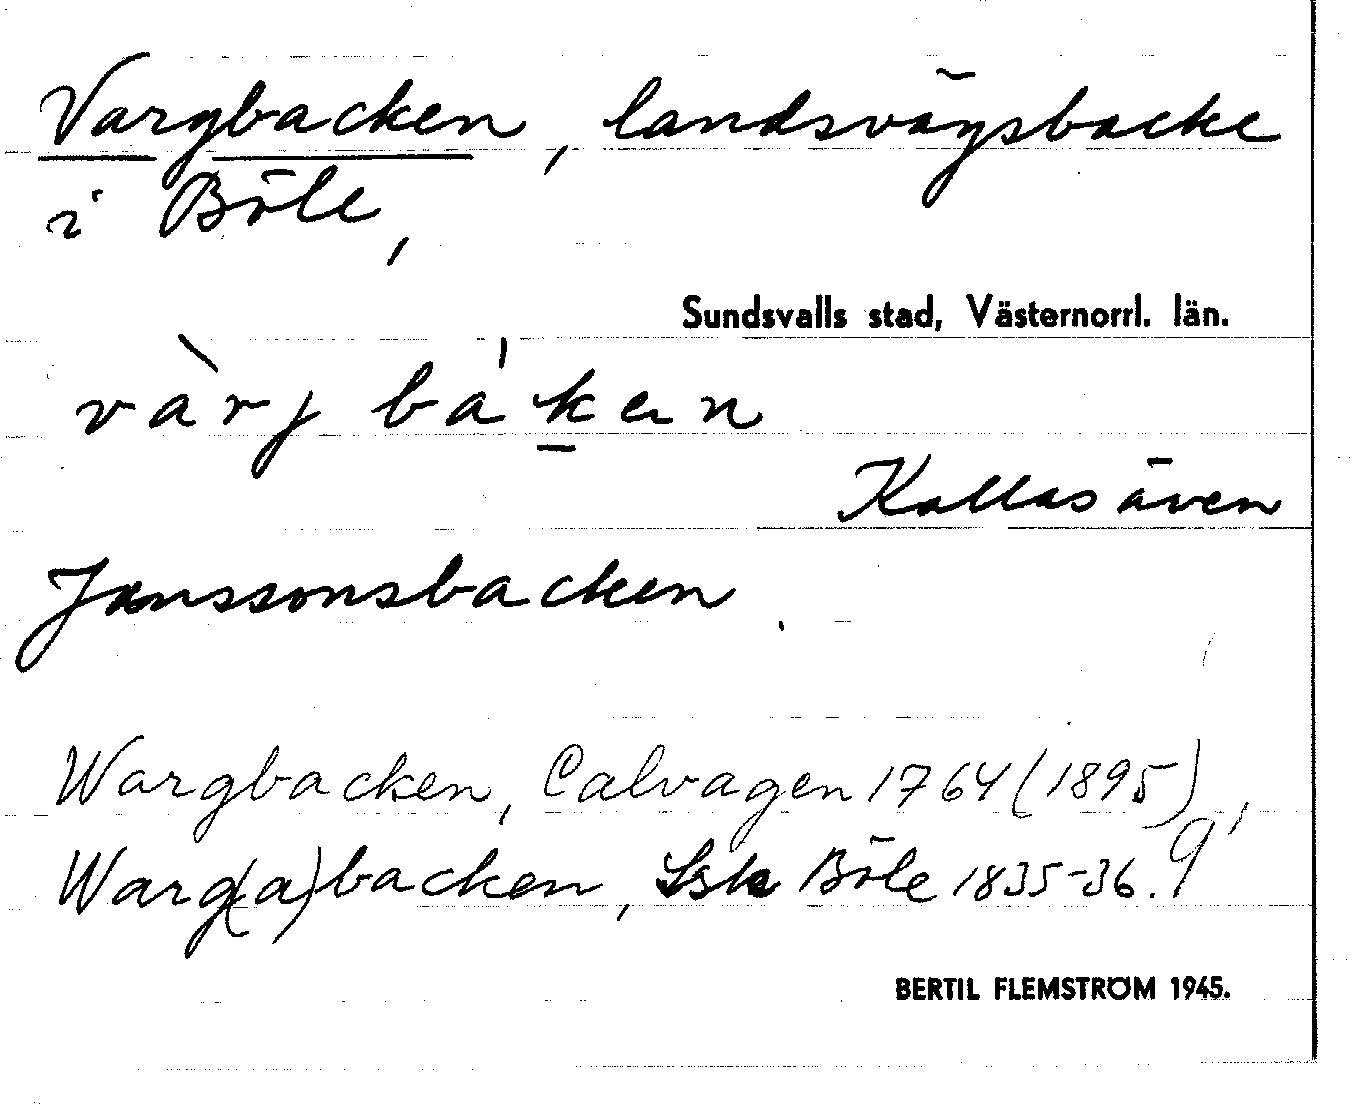 Vargbacken, landsvägsbacke
i Böle,
Sundsvalls stad, Västernorrl. län.
vàrj bákən
Kallas även
Janssonsbacken.
Wargbacken, Calvagen 1764 (1895),
Warg(a)backen, Lsk Böle 1835-36.
BERTIL FLEMSTRÖM 1945.